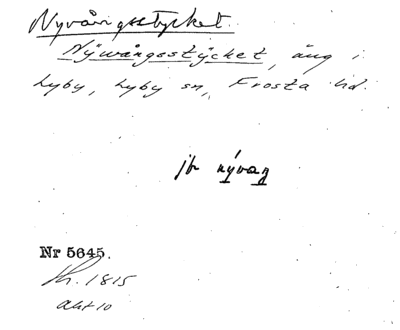 Nyvångsstycket.
Nÿwångsstÿcket, äng i
Lyby, Lyby sn, Frosta hd.
jfr nývag
Nr 5645.
Ih. 1815
akt 10